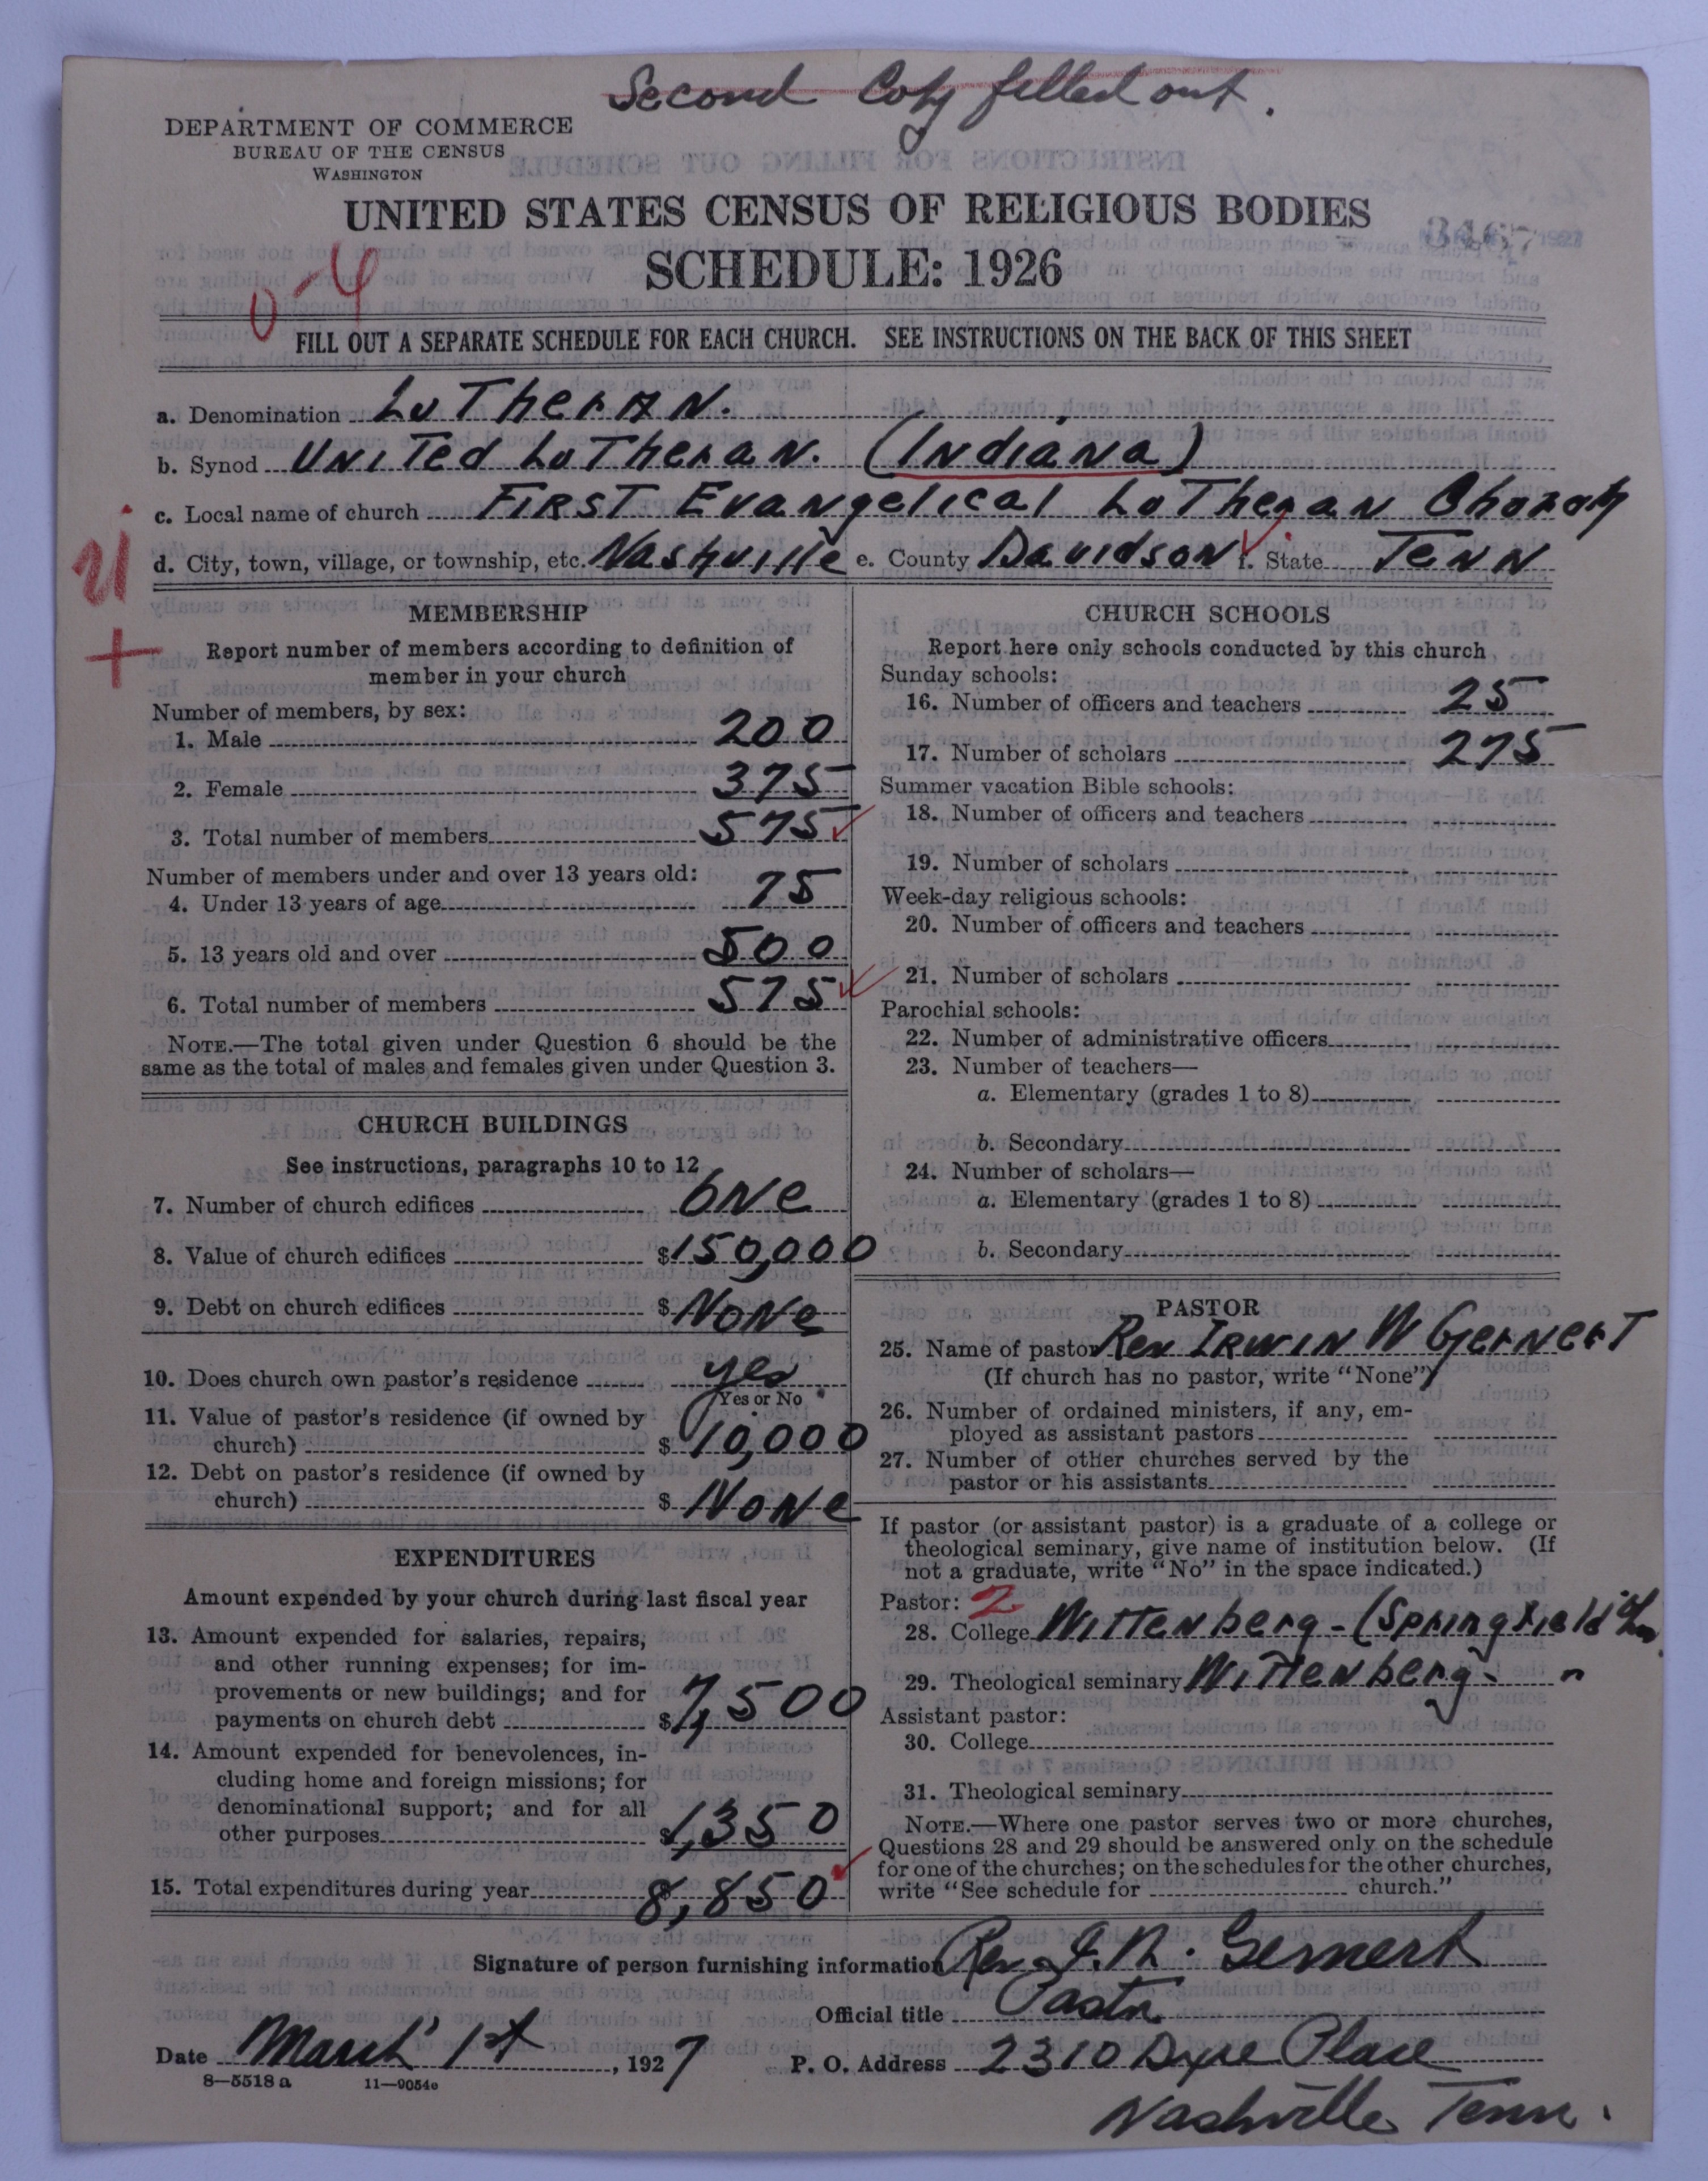 Second Copy filled out.
DEPARTMENT OF COMMERCE
BUREAU OF THE CENSUS
WASHINGTON
UNITED STATES CENSUS OF RELIGIOUS BODIES
SCHEDULE: 1926
0-4
FILL OUT A SEPARATE SCHEDULE FOR EACH CHURCH. SEE INSTRUCTIONS ON THE BACK OF THIS SHEET
a. Denomination Lutheran.
b. Synod United Lutheran. (Indiana)
c. Local name of church First Evangelical Lutheran Church
d. City, town, village, or township, etc. Nashville e. County Davidson f. State Tenn
MEMBERSHIP
Report number of members according to definition of
member in your church
Number of members, by sex:
1. Male 200
2. Female 375
3. Total number of members 575
Number of members under and over 13 years old:
4. Under 13 years of age 75
5. 13 years old and over 500
6. Total number of members 575
NOTE.—The total given under Question 6 should be the
same as the total of males and females given under Question 3.
CHURCH BUILDINGS
See instructions, paragraphs 10 to 12
7. Number of church edifices One
8. Value of church edifices $150,000
9. Debt on church edifices $ None
10. Does church own pastor's residence yes
Yes or No
11. Value of pastor's residence (if owned by
church) $ 10,000
12. Debt on pastor's residence (if owned by
church) $ None
EXPENDITURES
Amount expended by your church during last fiscal year
13. Amount expended for salaries, repairs,
and other running expenses; for im-
provements or new buildings; and for
payments on church debt $7,500
14. Amount expended for benevolences, in-
cluding home and foreign missions; for
denominational support; and for all
other purposes $1,350
15. Total expenditures during year 8,850
CHURCH SCHOOLS
Report here only schools conducted by this church
Sunday schools:
16. Number of officers and teachers 25
17. Number of scholars 275
Summer vacation Bible schools:
18. Number of officers and teachers
19. Number of scholars
Week-day religious schools:
20. Number of officers and teachers
21. Number of scholars
Parochial schools:
22. Number of administrative officers
23. Number of teachers—
a. Elementary (grades 1 to 8)
b. Secondary
24. Number of scholars—
a. Elementary (grades 1 to 8)
b. Secondary
PASTOR
25. Name of pastor Rev Irwin W Gernert
(If church has no pastor, write "None")
26. Number of ordained ministers, if any, em-
ployed as assistant pastors
27. Number of other churches served by the
pastor or his assistants
If pastor (or assistant pastor) is a graduate of a college or
theological seminary, give name of institution below. (If
not a graduate, write "No" in the space indicated.)
Pastor: 2
28. College Wittenberg - (Springfield
29. Theological seminary Wittenberg - "
Assistant pastor:
30. College
31. Theological seminary
NOTE.—Where one pastor serves two or more churches,
Questions 28 and 29 should be answered only on the schedule
for one of the churches; on the schedules for the other churches,
write "See schedule for church."
Signature of person furnishing information Rev I. W. Gernert
Official title Pastor
Date March 1st, 1927 P. O. Address 2310 Dixie Place
8—5518 a 11—9054c
Nashville Tenn.